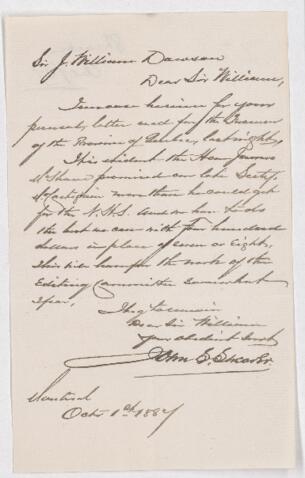 Sir J. William Dawson
Dear Sir William,
I enclose herein for your
perusal, letter recd for the Treasurer
of the Province of Quebec, last night,
It is evident the Hon James
McShane promised our late Secty,
more than he could get
for the N.H.S. And we have to do
the best we can with four hundred
dollars in place of seven or eight,
this will hamper the work of the
Editing Committee somewhat
I fear,
I beg to remain
Dear Sir William
Your obedient Servt
John S. Shearer
Montreal
Octr 1st 1887